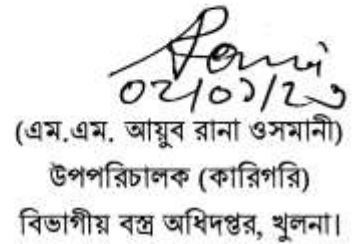 ০২/০১/২৩
(এম.এম. আয়ুব রানা ওসমানী)
উপপরিচালক (কারিগরি)
বিভাগীয় বস্ত্র অধিদপ্তর, খুলনা।